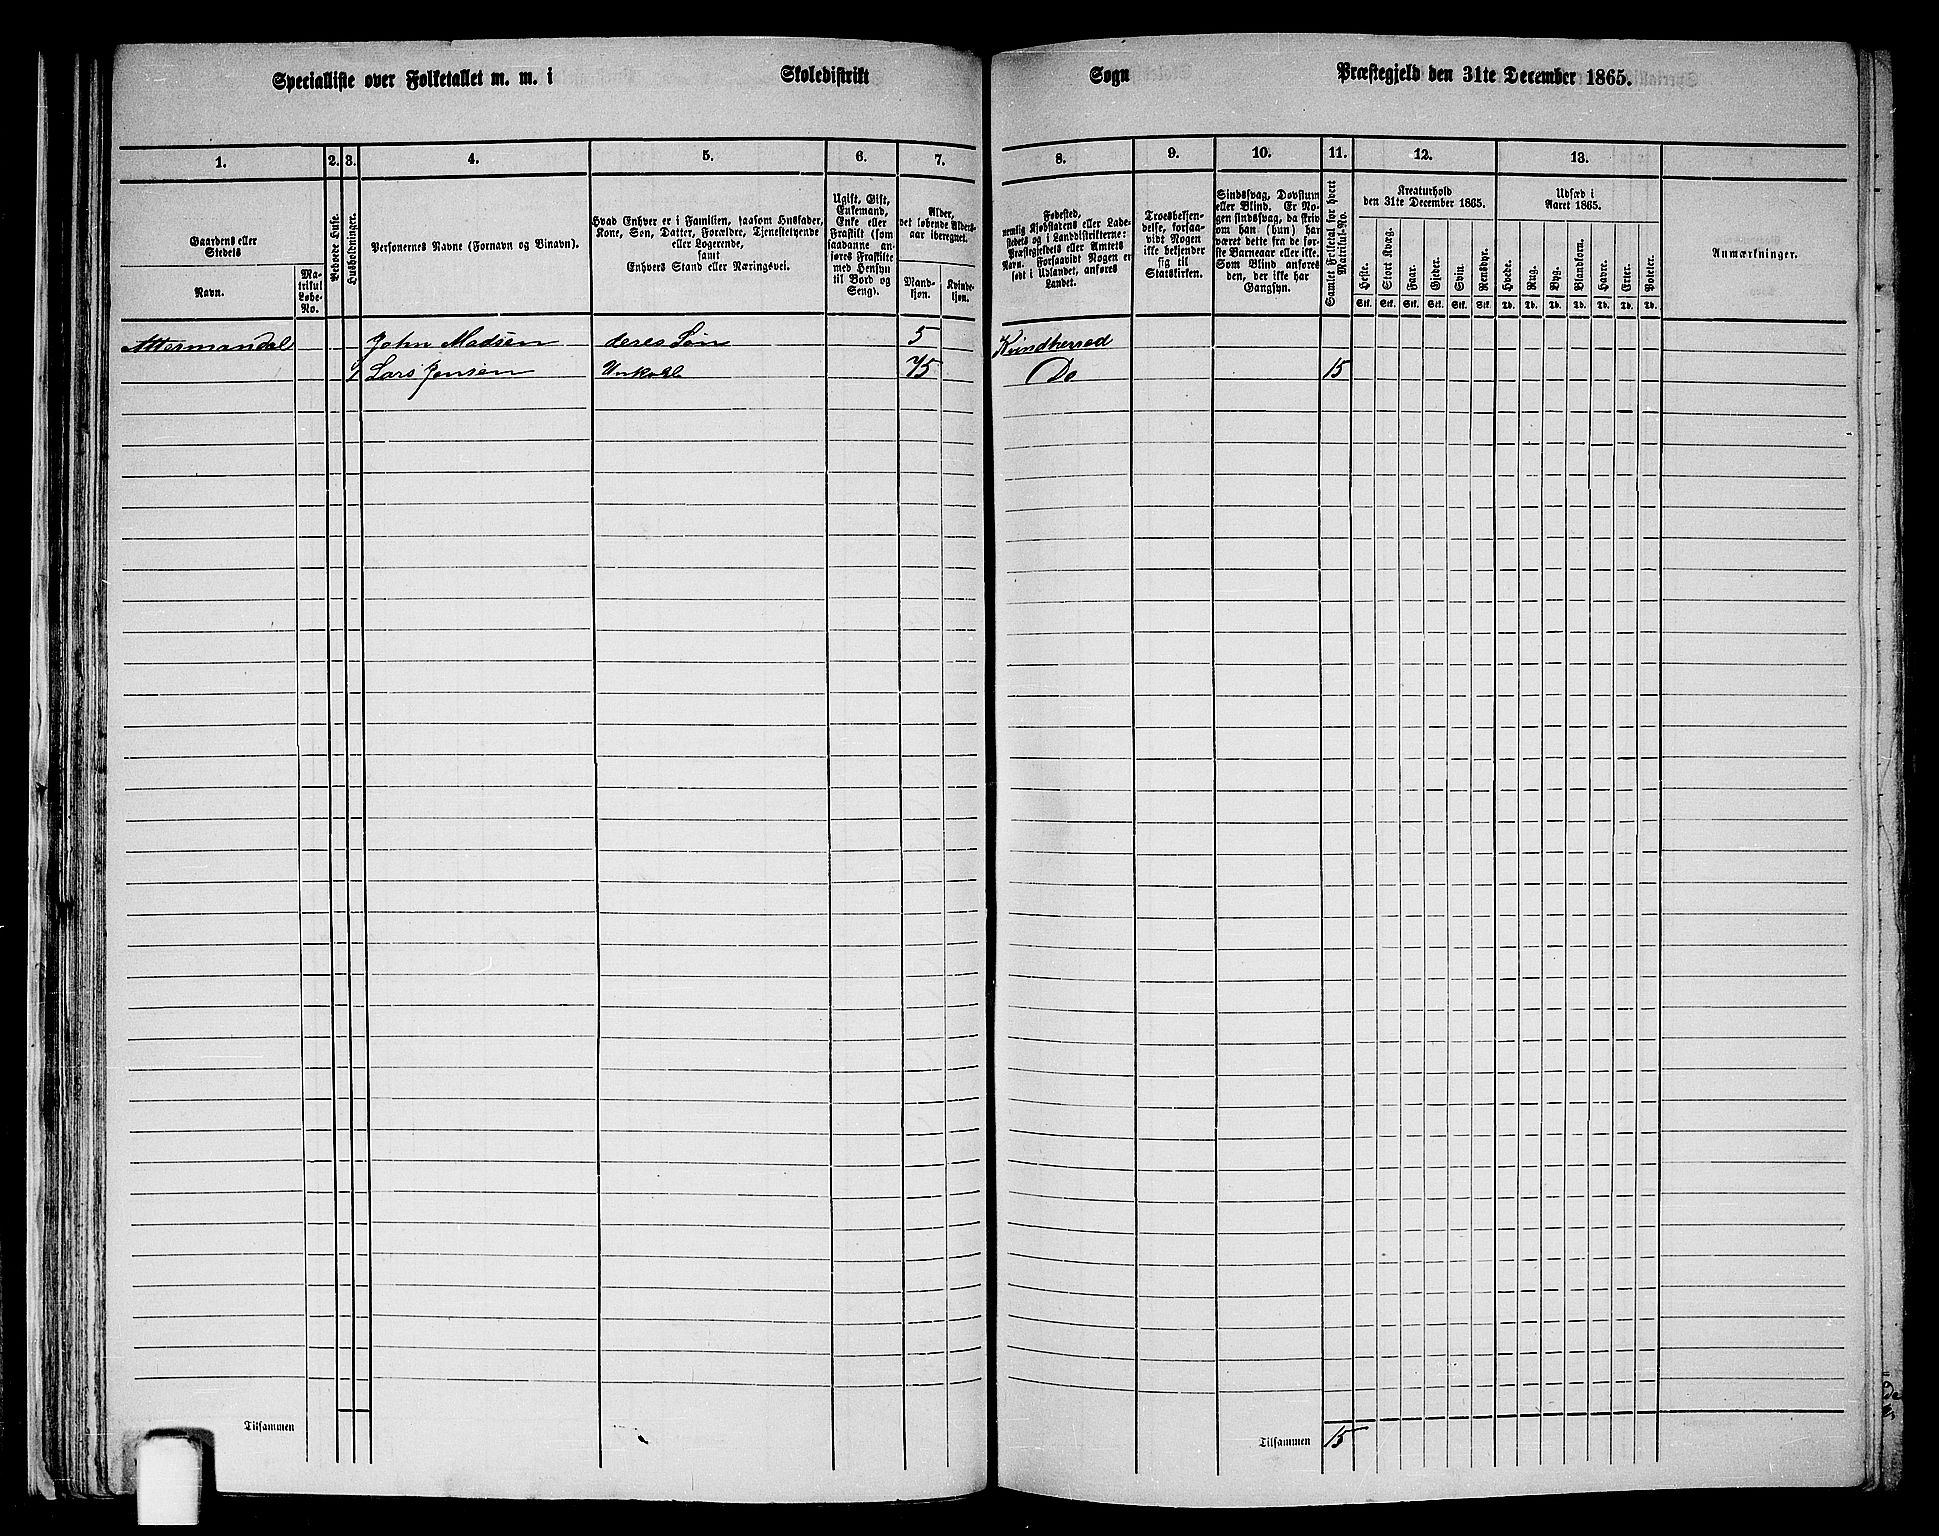 Specialliste over Folketallet m. m. i Skoledistrikt Sogn Præstegjeld den 31te December 1865.
1. 2. 3. 4. 5. 6. 7. 8. 9. 10. 11. 12. 13.
Gaardens eller Stedets
Navn.
Matrikul Løbe-No.
Beboede Huse.
Husholdninger.
Personernes Navne (Fornavn og Binavn).
Hvad Enhver er i Familien, saasom Husfader, Kone, Søn, Datter, Forældre, Tjenestetyende eller Logerende,
samt
Enhvers Stand eller Næringsvei.
Ugift, Gift, Enkemand, Enke eller Fraskilt (som saadanne anføres Fraskilte med Hensyn til Bord og Seng).
Alder, det løbende Alders-aar iberegnet.
Mand-kjøn.
Kvinde-kjøn.
Fødested, nemlig Kjøbstadens eller Ladestedets og i Landdistrikterne: Præstegjeldets eller Amtets Navn. Forsaavidt Nogen er født i Udlandet, anføres Landet.
Troesbekjendelse, forsaavidt Nogen ikke bekjender sig til Statskirken.
Sindssvag, Døvstum eller Blind. Er Nogen sindssvag, da skrives om han (hun) har været dette fra de første Barneaar eller ikke. Som Blind anføres den, der ikke har Gangsyn.
Samlet Folketal for hvert Matrikul-No.
Kreaturhold den 31te December 1865.
Heste. Stort Kvæg. Faar. Gjeder. Svin. Rensdyr.
Stk. Stk. Stk. Stk. Stk. Stk.
Udsæd i Aaret 1865.
Hvede. Rug. Byg. Blandkorn. Havre. Erter. Poteter.
Td. Td. Td. Td. Td. Td. Td.
Anmærkninger.
John Madsen deres Søn 5 Kvindherred
1 Lars Jensen 75 Do 15
Tilsammen Tilsammen 15